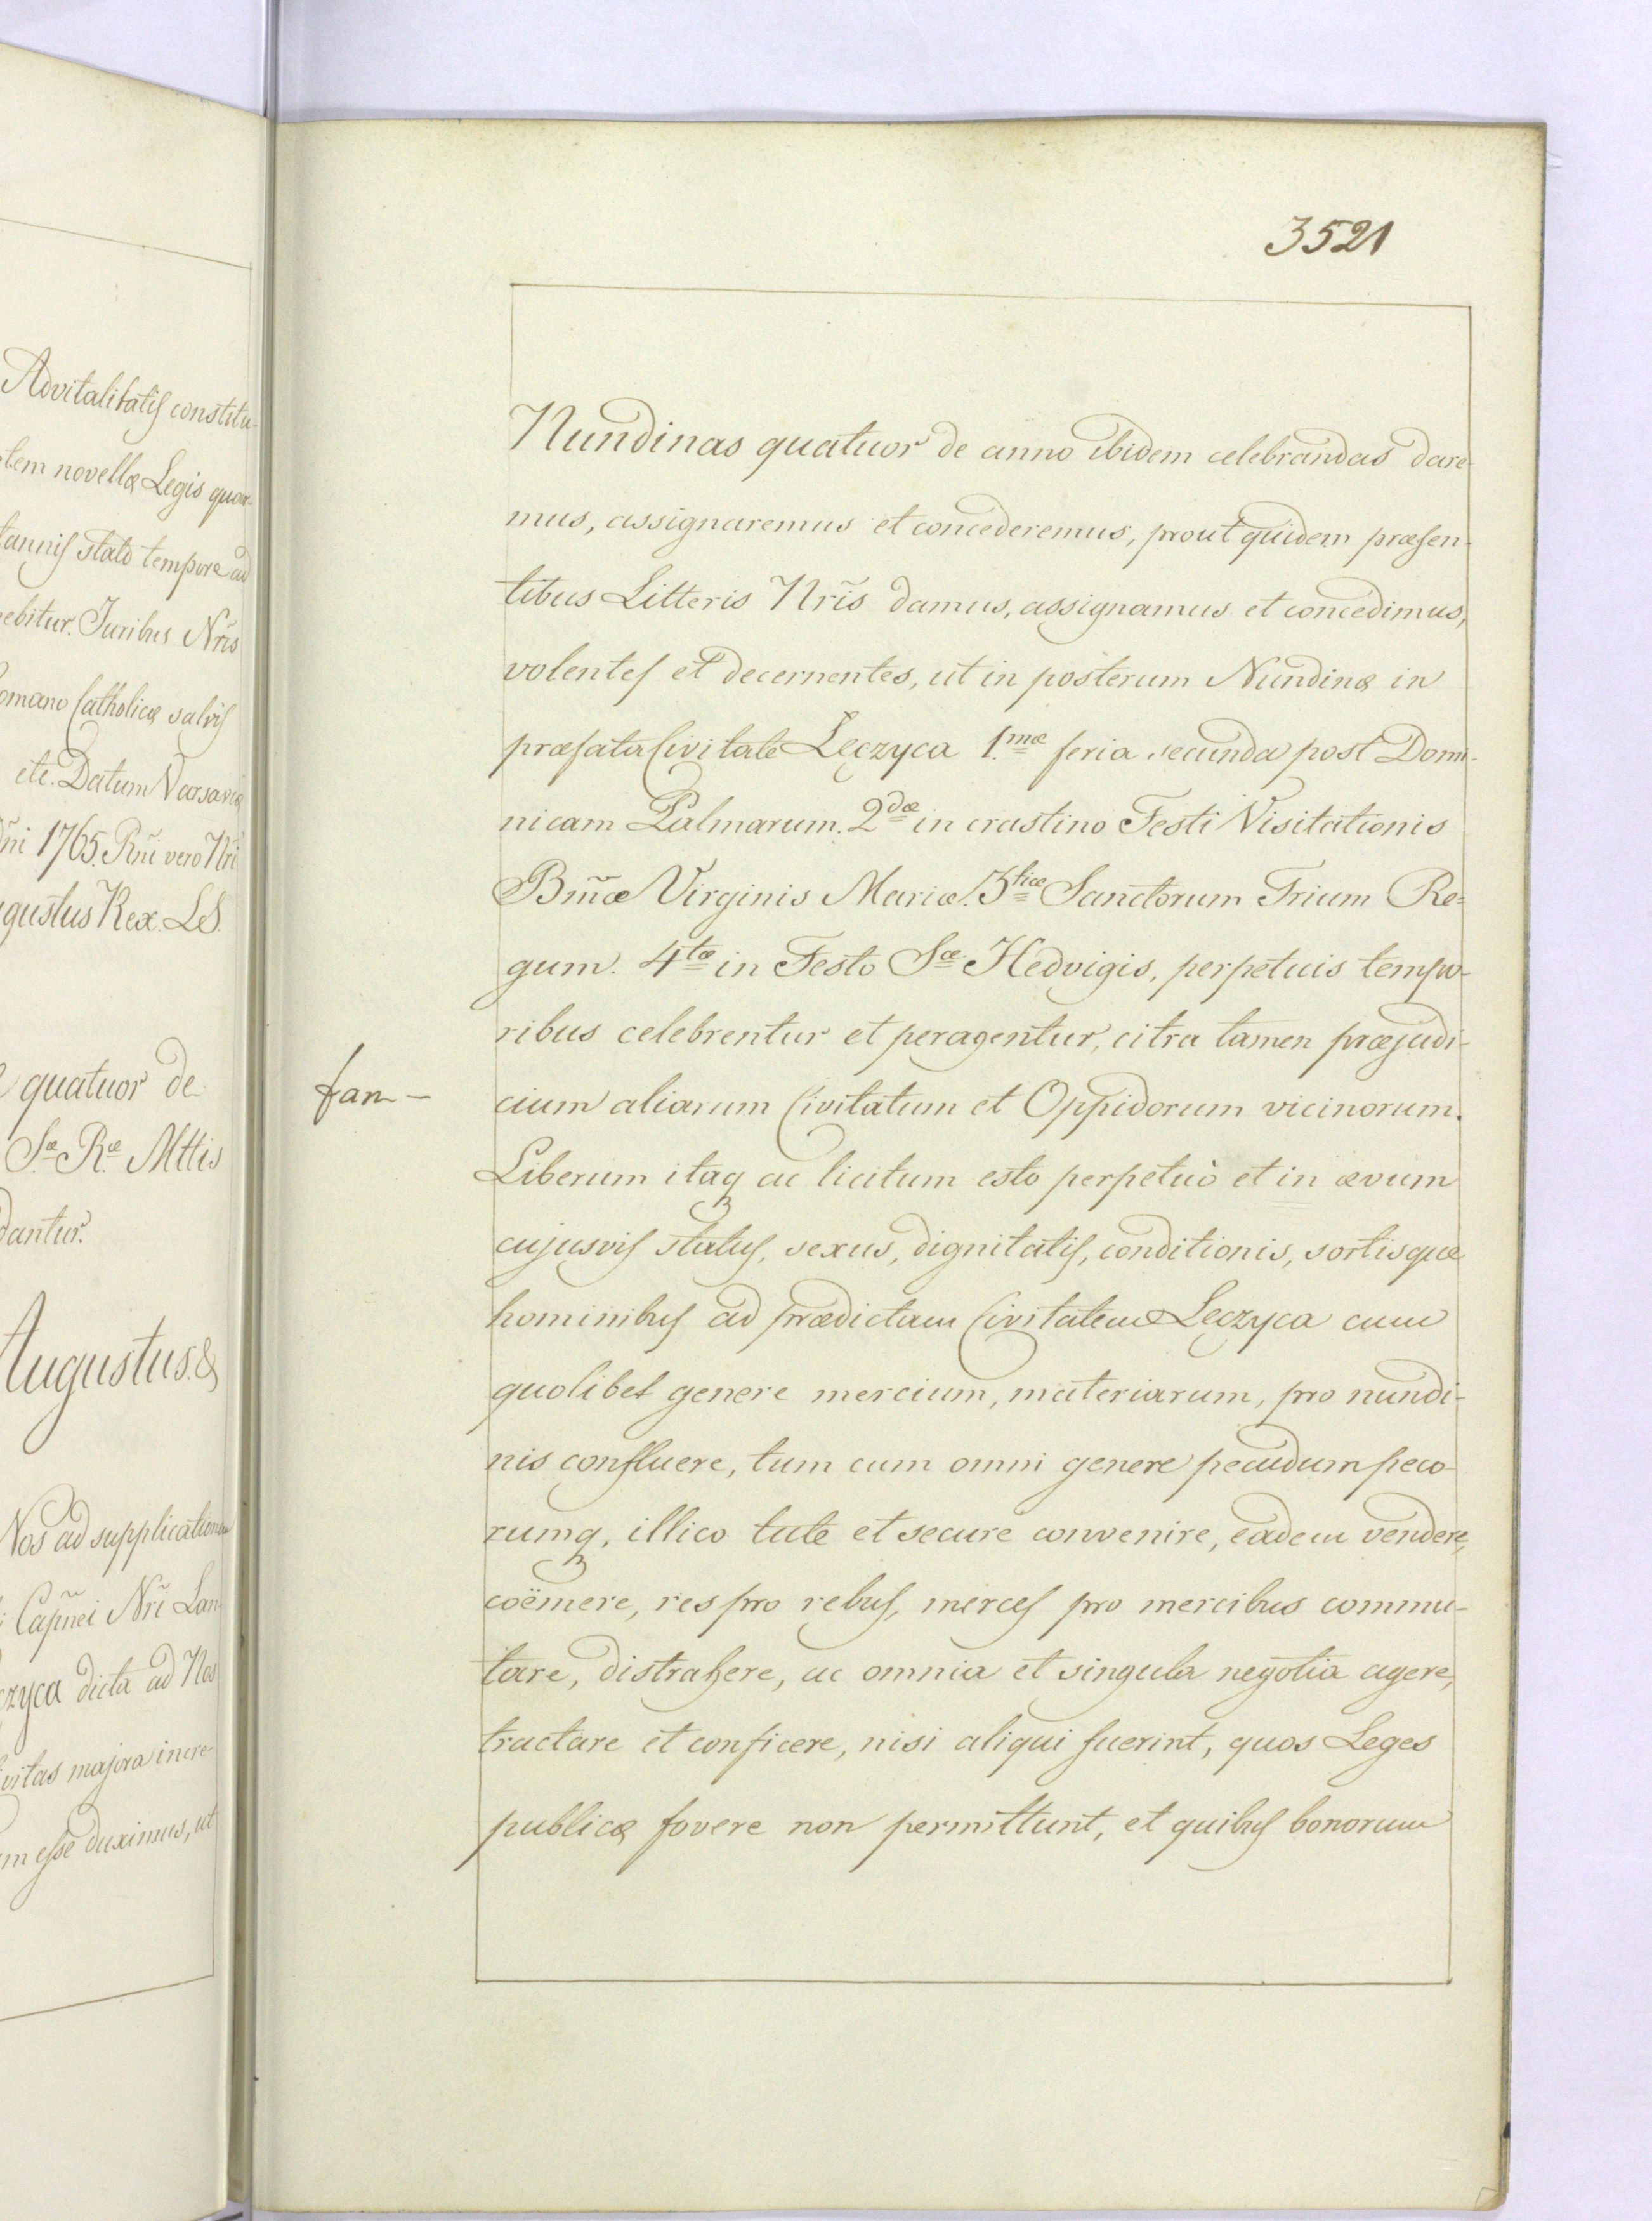 Advitalitatis constitu-
tem novellæ Legis quar-
tannis stato tempore ad
ebitur. Juribus Nr̃is
omano Catholicæ salvis
etc. Datum Varsaviæ
ñi 1765. Rñi vero Nr̃i
gustus Rex. LS.
quatuor de
Sæ Ræ Mttis
dantur.
Augustus &
Nos ad supplicationem
Capñei Nr̃i Lan-
czyca dicta ad Nos
ivitas majora incre-
m esse duximus, ut
3521
Nundinas quatuor de anno ibidem celebrandas dare-
mus, assignaremus et concederemus, prout quidem præsen-
tibus Litteris Nr̃is damus, assignamus et concedimus,
volentes et decernentes, ut in posterum Nundinæ in
præfata Civitate Lęczyca 1.mæ feria secunda post Domi-
nicam Palmarum. 2dæ in crastino Festi Visitationis
Bm̃æ Virginis Mariæ. 3tiæ Sanctorum Trium Re=
gum. 4tæ in Festo Sæ Hedvigis, perpetuis tempo-
ribus celebrentur et peragentur, citra tamen præjudi-
fan -
cium aliarum Civitatum et Oppidorum vicinorum.
Liberum itaq ac licitum esto perpetuò et in ævum
cujusvis status, sexus, dignitatis, conditionis, sortisque
hominibus ad prædictam Civitatem Lęczyca cum
quolibet genere mercium, materiarum, pro nundi-
nis confluere, tum cum omni genere pecudum peco-
rumq, illico tute et secure convenire, eadem vendere,
coëmere, res pro rebus, merces pro mercibus commu-
tare, distrahere, ac omnia et singula negotia agere,
tractare et conficere, nisi aliqui fuerint, quos Leges
publicæ fovere non permittunt, et quibus bonorum